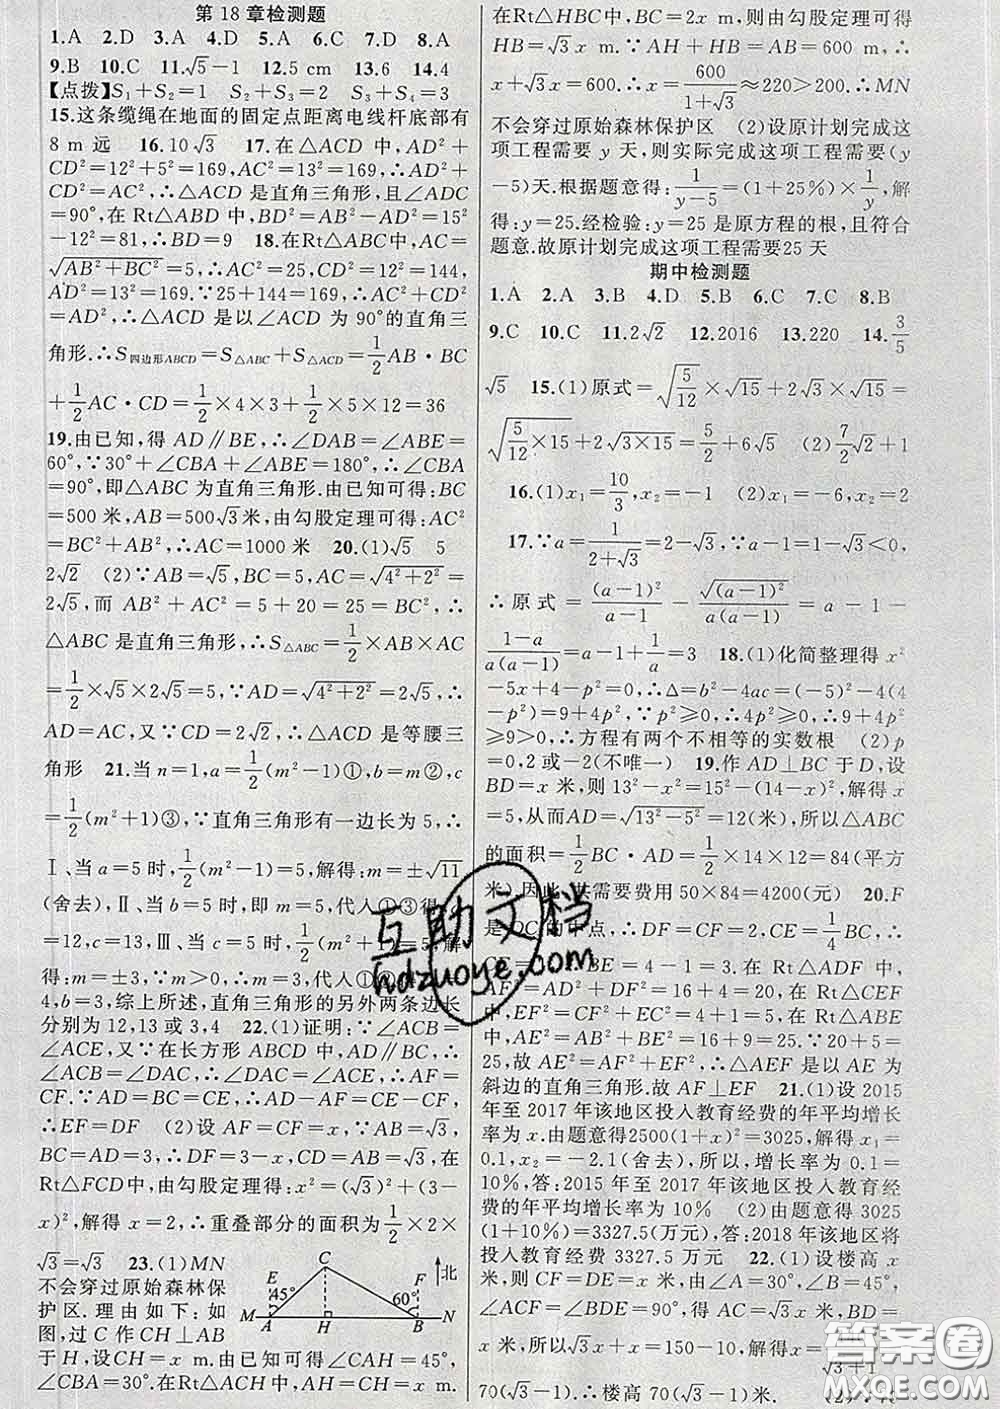 第18章检测题
1.A 2.D 3.A 4.D 5.A 6.C 7.D 8.A
9.B 10.C 11.√5−1 12.5 cm 13.6 14.4
【点拨】S₁+S₂=1 S₂+S₃=2 S₃+S₄=3
15.这条缆绳在地面的固定点距离电线杆底部有
8 m 远 16.10√3 17.在△ACD 中,AD²+
CD²=12²+5²=169,AC²=13²=169,∴AD²+
CD²=AC²,∴△ACD 是直角三角形,且∠ADC
=90°,在 Rt△ABD 中,BD²=AB²−AD²=15²
−12²=81,∴BD=9 18.在Rt△ABC中,AC=
√(AB²+BC²)=5,∴AC²=25,CD²=12²=144,
AD²=13²=169.∵25+144=169,∴AC²+CD²
=AD²,∴△ACD 是以∠ACD 为 90°的直角三
角形.∴S四边形ABCD=S△ABC+S△ACD=1/2AB·BC
+1/2AC·CD=1/2×4×3+1/2×5×12=36
19.由已知,得 AD∥BE,∴∠DAB=∠ABE=
60°,∵30°+∠CBA+∠ABE=180°,∴∠CBA
=90°,即△ABC 为直角三角形.由已知可得:BC
=500 米,AB=500√3米,由勾股定理可得:AC²
=BC²+AB²,∴AC=1000 米 20.(1)√5 5
2√2 (2)∵AB=√5,BC=5,AC=√(4²+2²)=
2√5,而 AB²+AC²=5+20=25=BC²,∴
△ABC 是直角三角形,∴S△ABC=1/2×AB×AC
=1/2×√5×2√5=5,∵AD=√(4²+2²)=2√5,∴
AD=AC,又∵CD=2√2,∴△ACD 是等腰三
角形 21.当 n=1,a=1/2(m²−1)①,b=m②,c
=1/2(m²+1)③,∵直角三角形有一边长为 5,∴
Ⅰ、当 a=5 时,1/2(m²−1)=5,解得:m=±√11
(舍去),Ⅱ、当 b=5 时,即 m=5,代人①③得,a
=12,c=13,Ⅲ、当 c=5 时,1/2(m²+1)=5,解
得:m=±3,∵m>0,∴m=3,代人①②得,a=
4,b=3,综上所述,直角三角形的另外两条边长
分别为 12,13 或 3,4 22.(1)证明:∵∠ACB=
∠ACE,又∵在长方形 ABCD 中,AD∥BC,∴
∠ACB=∠DAC,∴∠DAC=∠ACE,∴AF=
CF.∵AD=BC=CE,∴AD−AF=CE−CF,
∴EF=DF (2)设 AF=CF=x,∵AB=√3,
BC=AD=3,∴DF=3−x,CD=AB=√3,在
Rt△FCD中,由勾股定理得:x²=(√3)²+(3−
x)²,解得 x=2,∴重叠部分的面积为1/2×2×
√3=√3 23.(1)MN
不会穿过原始森林保
护区.理由如下:如
图,过 C 作CH⊥AB
于H,设CH=x m.由已知可得∠CAH=45°,
∠CBH=60°.在Rt△ACH中,AH=CH=x m.
C 北 E F 45° 60° M A H B N
在Rt△HBC中,BC=2x m,则由勾股定理可得
HB=√3x m.∵AH+HB=AB=600 m,∴
x+√3x=600.∴x=600/(1+√3)≈220>200.∴MN
不会穿过原始森林保护区 (2)设原计划完成这
项工程需要 y 天,则实际完成这项工程需要(y
−5)天.根据题意得:1/(y−5)=(1+25%)×1/y,解
得:y=25.经检验:y=25 是原方程的根,且符合
题意.故原计划完成这项工程需要25 天
期中检测题
1.A 2.A 3.B 4.D 5.B 6.C 7.C 8.B
9.C 10.C 11.2√2 12.2016 13.220 14.3/5
√5 15.(1)原式=√(5/12)×√15+2√3×√15=
√(5/12×15)+2√(3×15)=5/2+6√5 (2)7/2√2+1
16.(1)x₁=10/3,x₂=−1 (2)x₁=−6,x₂=2
17.∵a=1/(2+√3)=2−√3,∵a−1=1−√3<0,
∴原式=(a−1)²/(a−1)−√((a−1)²)/(a(a−1))=a−1−
(1−a)/(a(a−1))=a−1+1/a=3 18.(1)化简整理得 x²
−5x+4−p²=0,∴Δ=b²−4ac=(−5)²−4(4
−p²)=9+4p²,∵p²≥0,∴4p²≥0,∴9+4p²
≥9>0,∴方程有两个不相等的实数根 (2)p
=0,2或−2(不唯一) 19.作 AD⊥BC 于D,设
BD=x 米,则 13²−x²=15²−(14−x)².解得 x
=5,从而AD=√(13²−5²)=12(米),所以△ABC
的面积=1/2BC·AD=1/2×14×12=84(平方
米)因此,共需要费用 50×84=4200(元) 20.F
是 DC 的中点,∴DF=CF=2,CE=1/4BC,∴
CE=1,BE=4−1=3.在 Rt△ADF 中,
AF²=AD²+DF²=16+4=20,在 Rt△CEF
中,EF²=CF²+EC²=4+1=5,在 Rt△ABE
中,AE²=AB²+BE²=16+9=25.∵20+5=
25,故 AE²=AF²+EF²,∴△AEF 是以 AE 为
斜边的直角三角形.故 AF⊥EF 21.(1)设 2015
年至 2017 年该地区投入教育经费的年平均增长
率为 x.由题意得2500(1+x)²=3025,解得 x₁=
0.1,x₂=−2.1(舍去),所以,增长率为 0.1=
10%,答:2015 年至 2017 年该地区投入教育经
费的年平均增长率为 10% (2)由题意得 3025
(1+10%)=3327.5(万元),答:2018 年该地区将
投入教育经费 3327.5 万元 22.(1)设楼高 x
米,则 CF=DE=x 米,由∠A=30°,∠B=45°,
∠ACF=∠BDE=90°,得 AC=√3x 米,BD=
x 米,所以√3x+x=150−10,解得 x=140/(√3+1)=
70(√3−1).∴楼高 70(√3−1)米.
互助文档
hdzuoye.com
答案圈
MXQE.COM